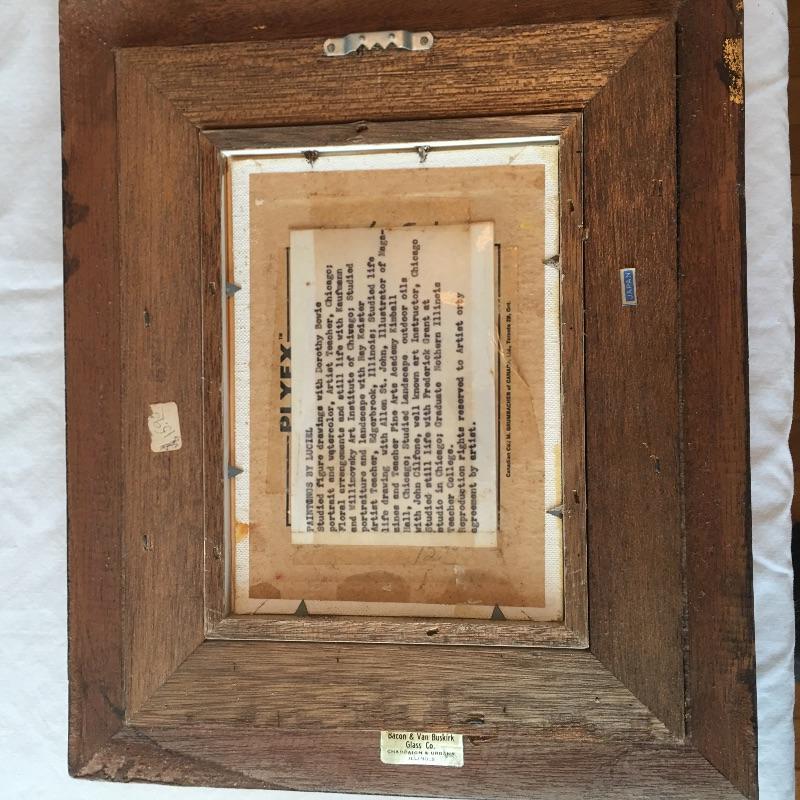 PLYEX™
PAINTONGS BY LUCIEL
Studied figure drawings with Dorothy Bovie
portrait and watercolor, Artist Teacher, Chicago;
Floral arrangements and still life with Kaufmann
and Willinovsky Art Institute of Chicago; Studied
portraiture and landscape with Ray Keister
Artist Teacher, Edgerbrook, Illinois; Studied life
life drawing with Allen St. John, Illustrator of Maga-
zines and Teacher Fine Arts Academy Kimball
Hall, Chicago; Studied Landscape outdoor oils
with John Gilfone, well known art Instructor, Chicago
Studied still life with Frederick Grant at
studio in Chicago; Graduate Nothern Illinois
Teacher College.
Reproduction rights reserved to Artist orby
agreement by artist.
Canadian M. GRUMBACHER of CANADA Toronto Ont.
JAPAN
Bacon & Van Buskirk
Glass Co.
CHAMPAIGN & URBANA
ILLINOIS